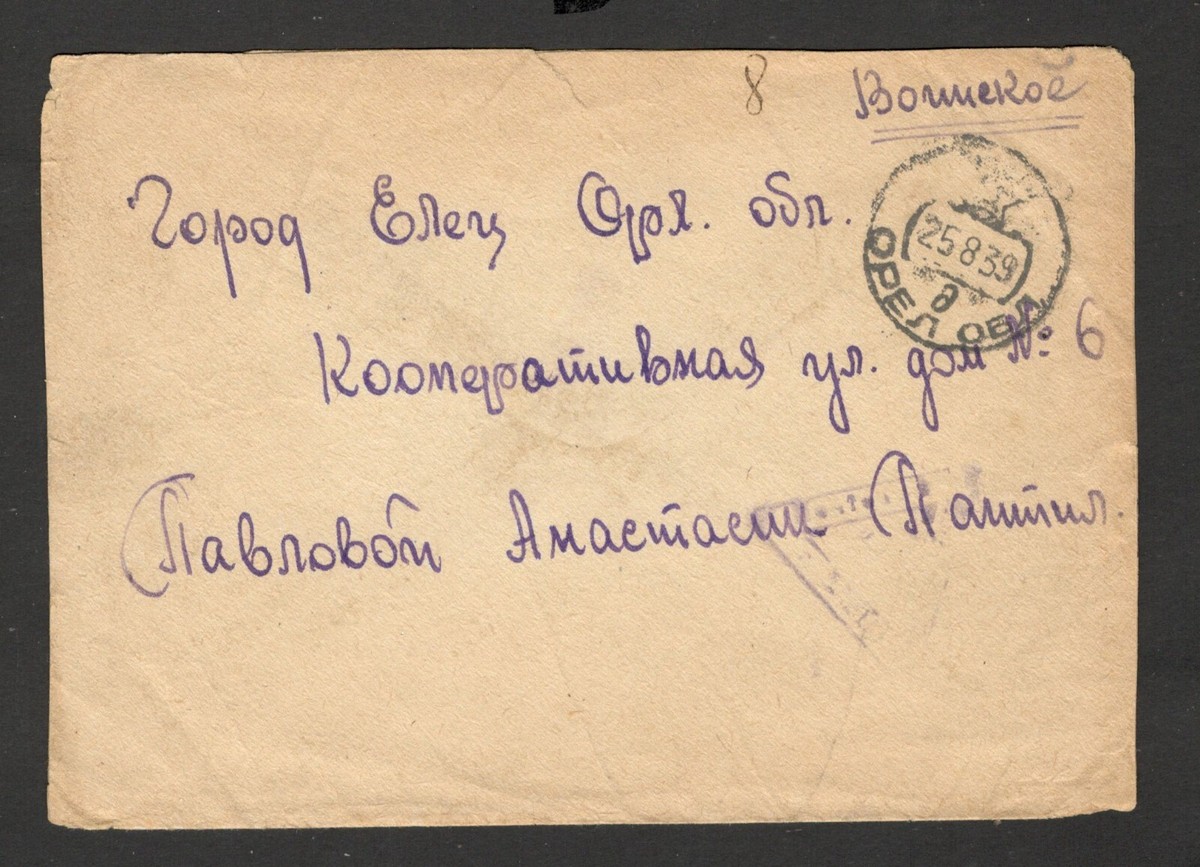 8
Воинское
Город Елец Орл. обл.
25 8 39
д
ОРЕЛ ОБЛ
Кооперативная ул. дом №: 6
Павловой Анастасии Пантил.